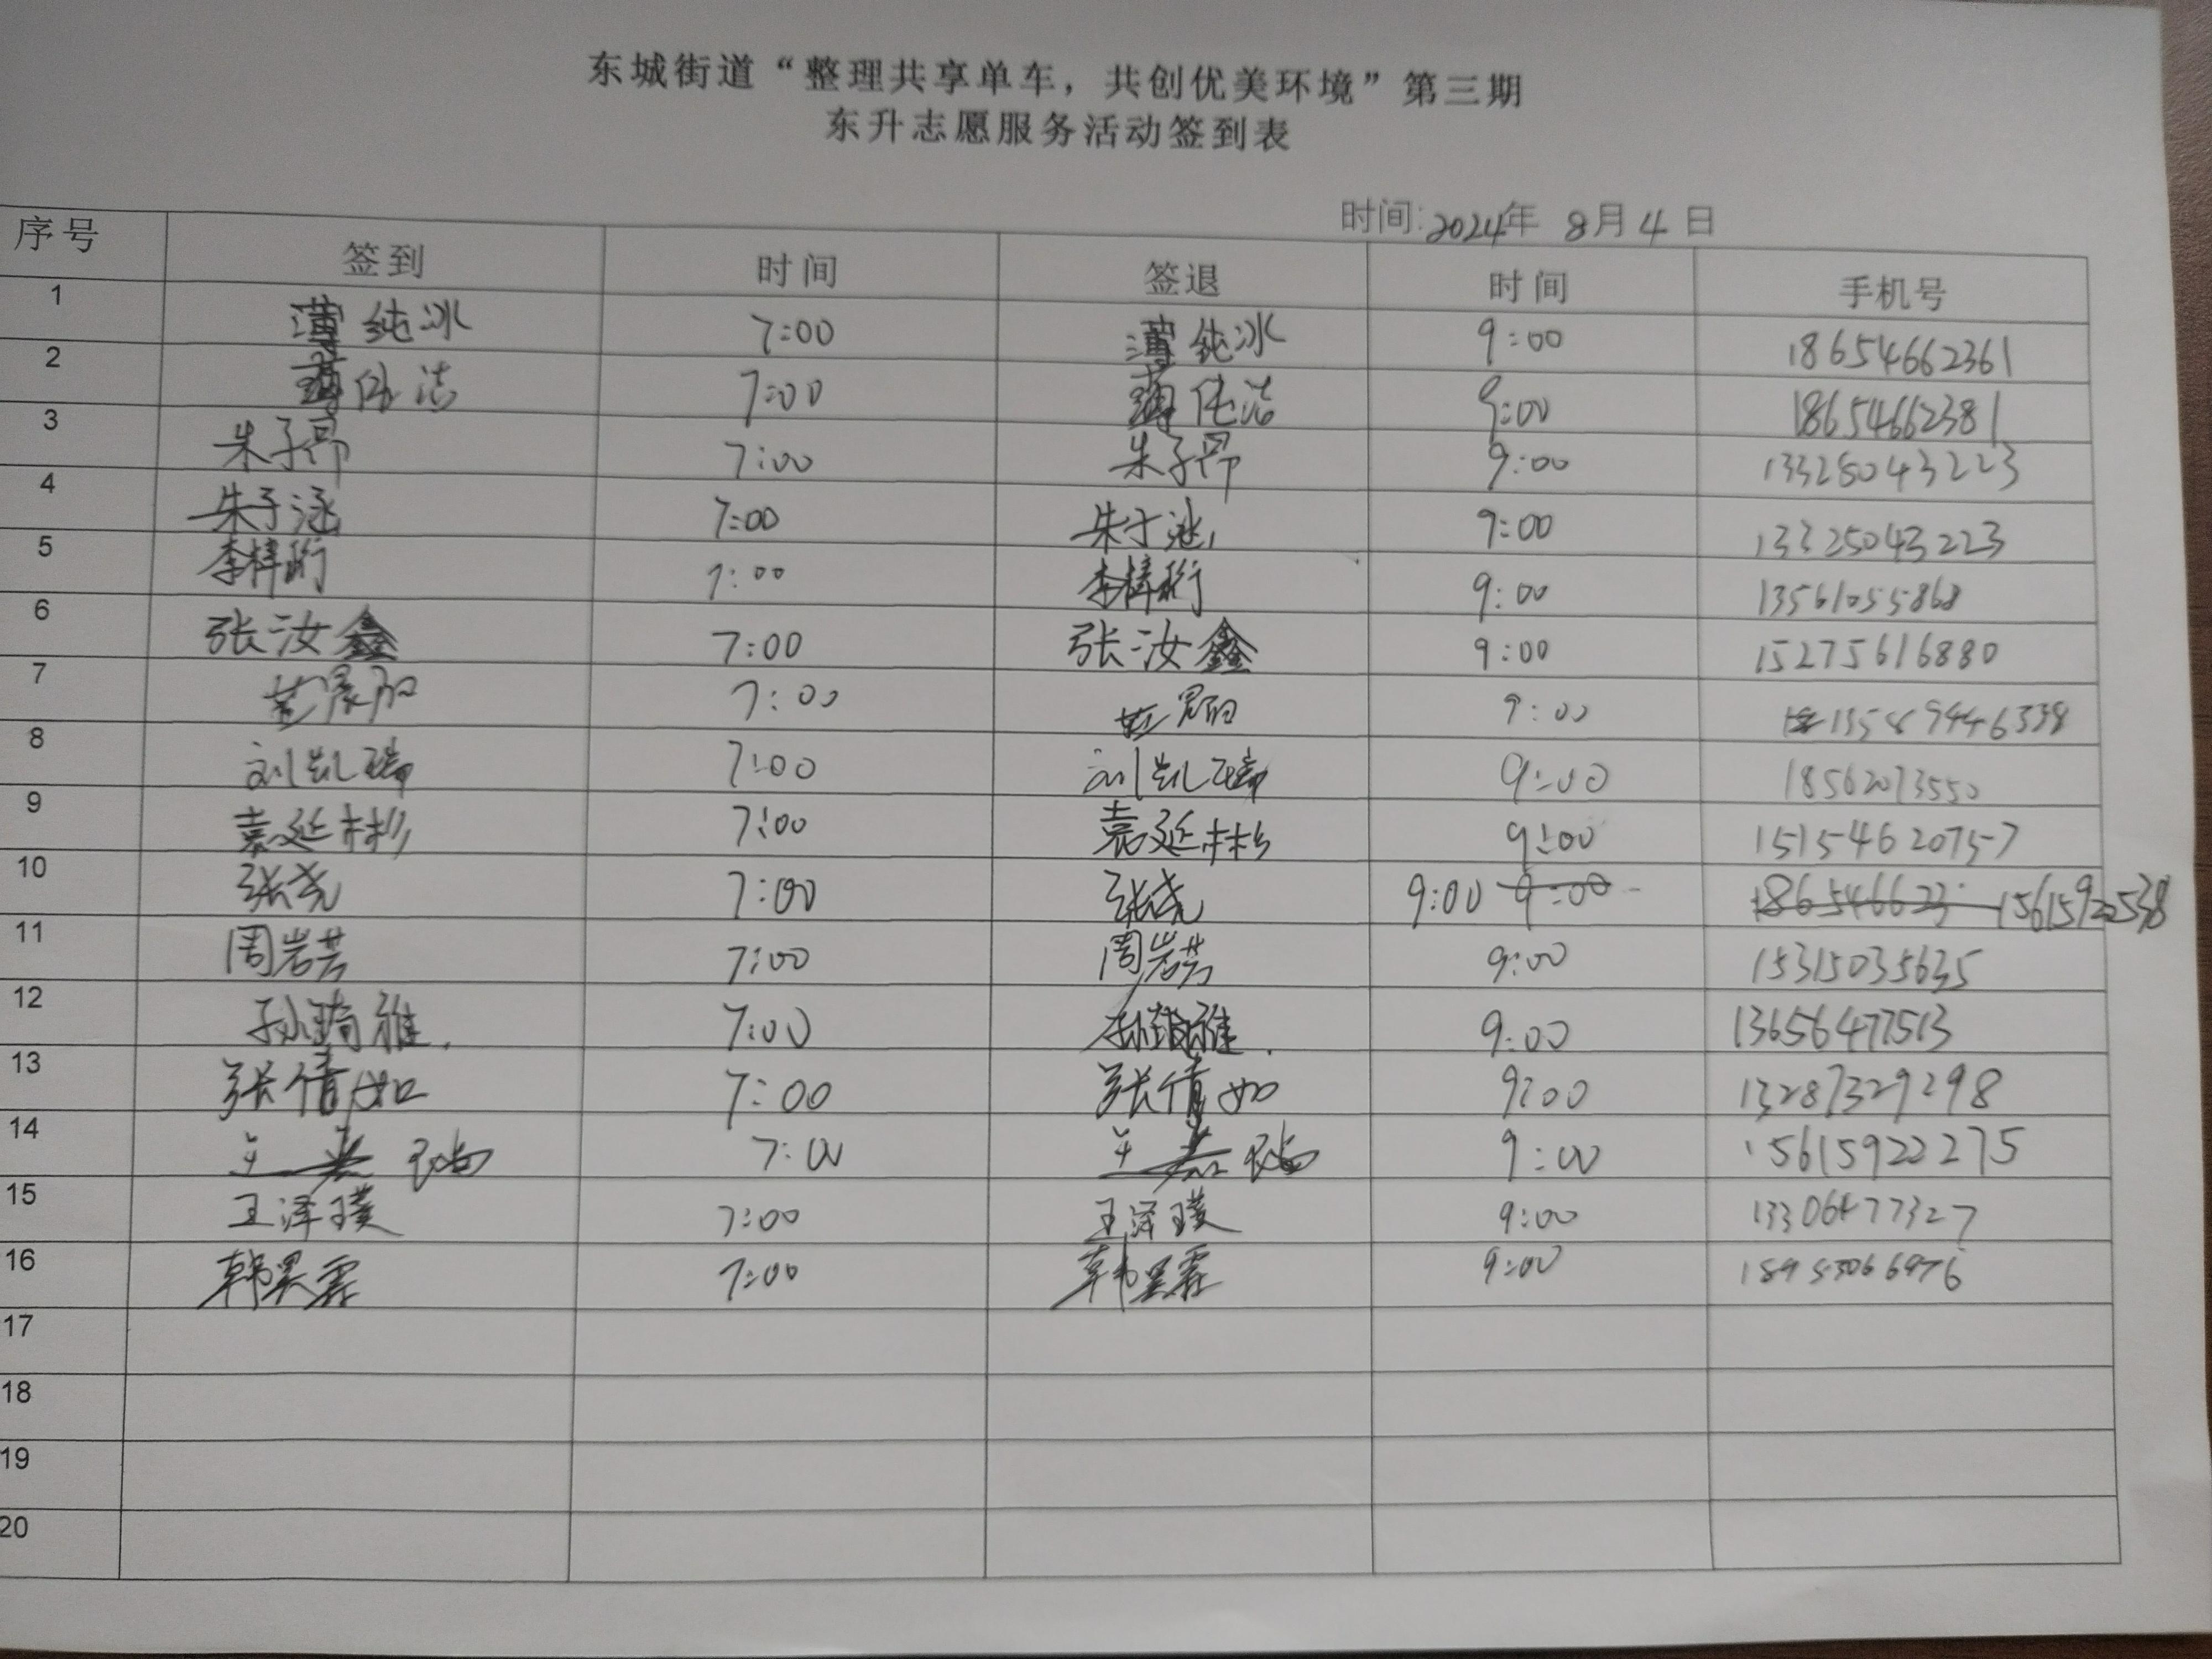 东城街道“整理共享单车，共创优美环境”第三期
东升志愿服务活动签到表
时间:2024年 8月4日
序号 签到 时间 签退 时间 手机号
1 薄纯冰 7:00 薄纯冰 9:00 18654662361
2 薄 洁 7:00 薄 洁 9:00 18654662381
3 朱子昂 7:00 朱子昂 9:00 13325043223
4 朱子涵 7:00 朱子涵 9:00 13325043223
5 李梓珩 7:00 李梓珩 9:00 13561055868
6 张汝鑫 7:00 张汝鑫 9:00 15275616880
7 7:00 9:00
8 刘凯瑞 7:00 刘凯瑞 9:00 18562073550
9 袁延彬 7:00 袁延彬 9:00 15154620757
10 张尧 7:00 张尧 9:00 9:00 186546623 15615922538
11 周岩芸 7:00 周岩芸 9:00 15315035635
12 孙琦雅. 7:00 孙琦雅. 9:00 13656477513
13 张倩如 7:00 张倩如 9:00 13287329298
14 7:00 9:00 15615922275
15 王泽璞 7:00 王泽璞 9:00 13306477327
16 韩昊霖 7:00 韩昊霖 9:00
17
18
19
20